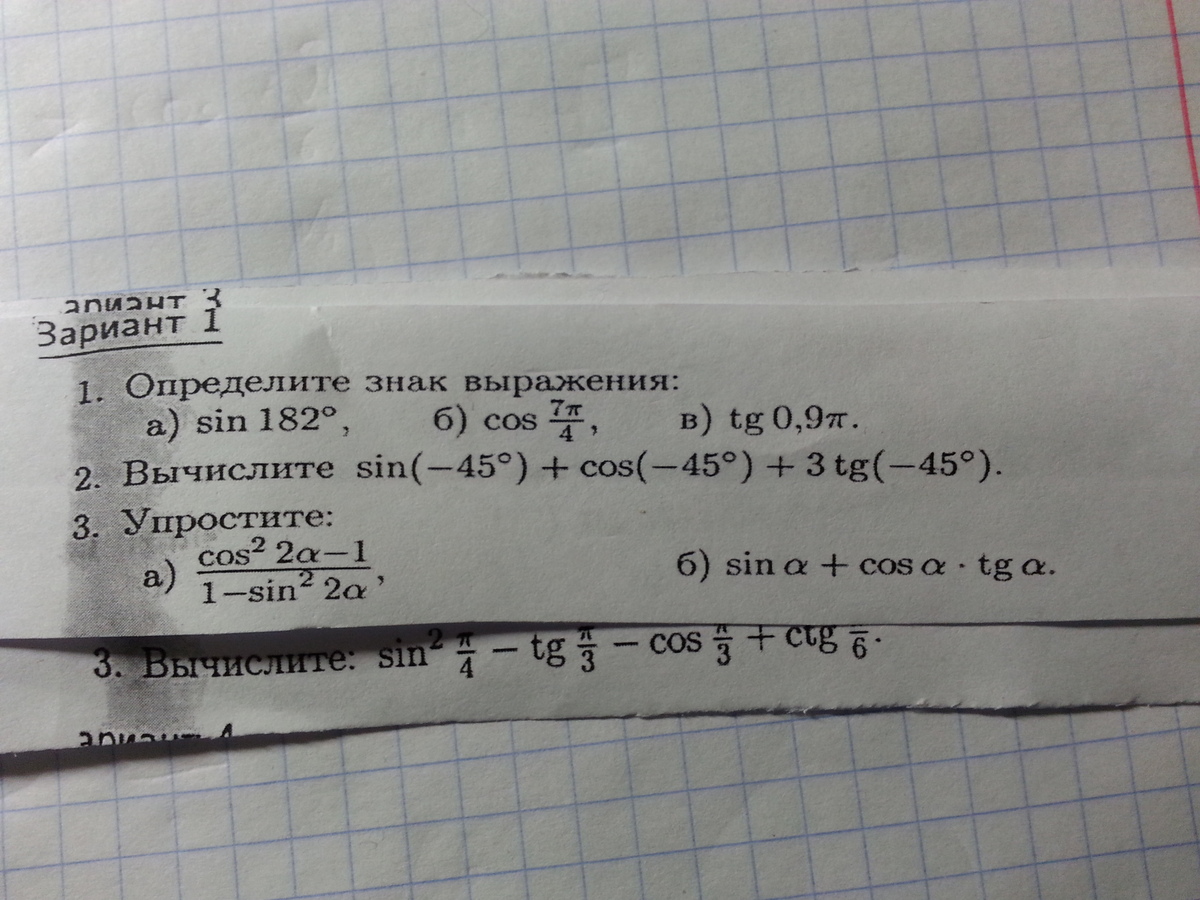 Вариант 1
1. Определите знак выражения:
а) sin 182°, б) cos 7π/4, в) tg 0,9π.
2. Вычислите sin(−45°) + cos(−45°) + 3 tg(−45°).
3. Упростите:
а) (cos² 2α−1)/(1−sin² 2α), б) sin α + cos α · tg α.
3. Вычислите: sin² π/4 − tg π/3 − cos π/3 + ctg π/6.